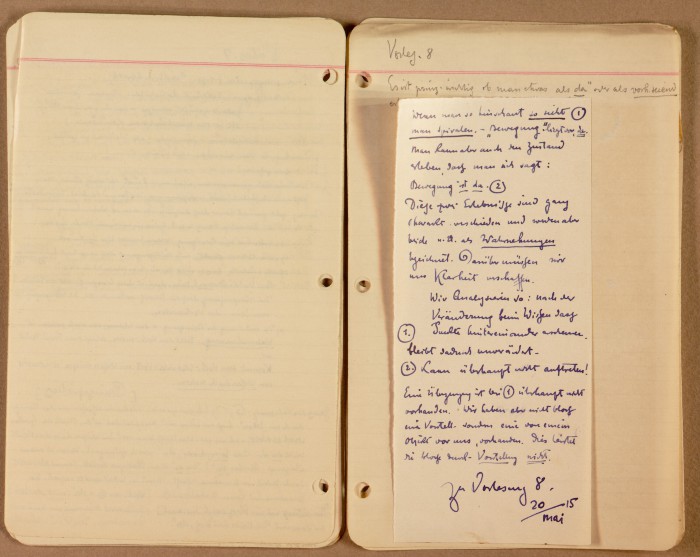 Vorles. 8
Es ist prinz. wichtig ob man etwas als da" oder als vorherseiend
Wenn man so hinschaut so sieht ①
man Spiralen. - "Bewegung" liegt vor, da.
Man kann aber auch den Zustand
erleben, dass man sich sagt:
Bewegung ist da. ②
Diese zwei Erlebnisse sind ganz
charakt. verschieden und werden aber
beide als Wahrnehmungen
bezeichnet. Darüber müssen wir
uns Klarheit verschaffen.
Wir Analysieren so: nach der
Veränderung beim Wissen dass
①. Punkte hintereinander
bleibt dadurch unverändert.
②. Kann überhaupt nicht auftreten!
Eine Überzeugung ist bei ① überhaupt nicht
vorhanden. Wir haben aber nicht bloss
eine Vorstell. sondern eine von einem
Objekt vor uns, vorhanden. Dies leistet
die blosse Vorstellung nicht.
Zu Vorlesung 8.
20 15
Mai